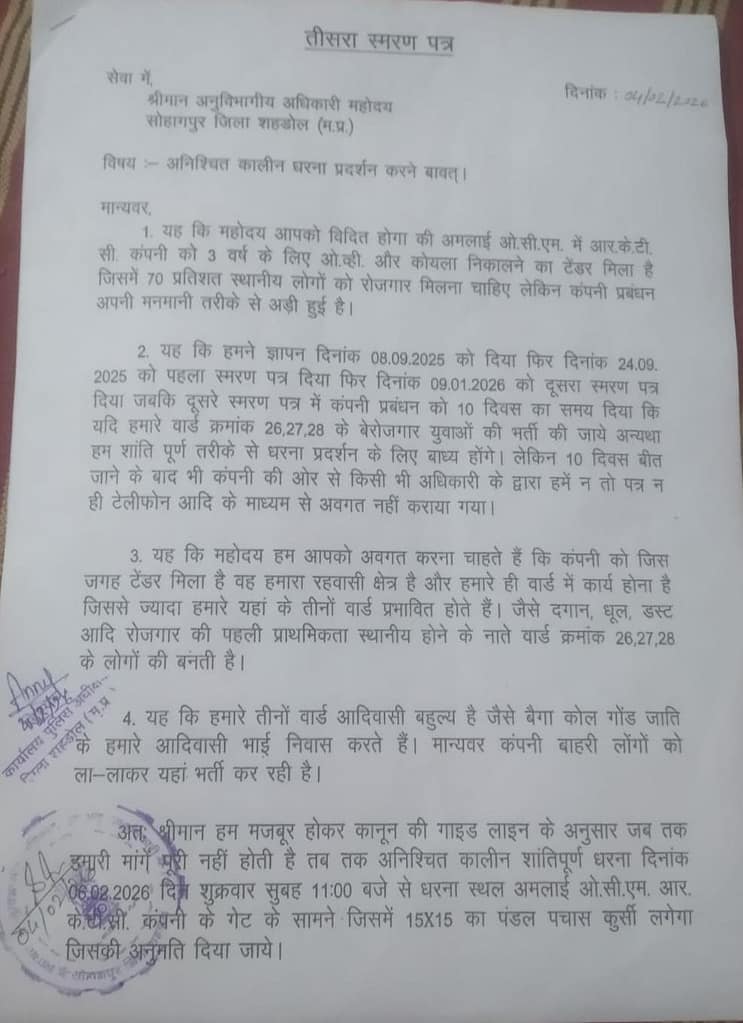 तीसरा स्मरण पत्र
सेवा में,
दिनांक : 04/02/2026
श्रीमान अनुविभागीय अधिकारी महोदय
सोहागपुर जिला शहडोल (म.प्र.)
विषय :– अनिश्चित कालीन धरना प्रदर्शन करने बावत्।
मान्यवर,
1. यह कि महोदय आपको विदित होगा की अमलाई ओ.सी.एम. में आर.के.टी.
सी. कंपनी को 3 वर्ष के लिए ओ.व्ही. और कोयला निकालने का टेंडर मिला है
जिसमें 70 प्रतिशत स्थानीय लोगों को रोजगार मिलना चाहिए लेकिन कंपनी प्रबंधन
अपनी मनमानी तरीके से अड़ी हुई है।
2. यह कि हमने ज्ञापन दिनांक 08.09.2025 को दिया फिर दिनांक 24.09.
2025 को पहला स्मरण पत्र दिया फिर दिनांक 09.01.2026 को दूसरा स्मरण पत्र
दिया जबकि दूसरे स्मरण पत्र में कंपनी प्रबंधन को 10 दिवस का समय दिया कि
यदि हमारे वार्ड क्रमांक 26,27,28 के बेरोजगार युवाओं की भर्ती की जाये अन्यथा
हम शांति पूर्ण तरीके से धरना प्रदर्शन के लिए बाध्य होंगे। लेकिन 10 दिवस बीत
जाने के बाद भी कंपनी की ओर से किसी भी अधिकारी के द्वारा हमें न तो पत्र न
ही टेलीफोन आदि के माध्यम से अवगत नहीं कराया गया।
3. यह कि महोदय हम आपको अवगत करना चाहते हैं कि कंपनी को जिस
जगह टेंडर मिला है वह हमारा रहवासी क्षेत्र है और हमारे ही वार्ड में कार्य होना है
जिससे ज्यादा हमारे यहां के तीनों वार्ड प्रभावित होते हैं। जैसे दगान, धूल, डस्ट
आदि रोजगार की पहली प्राथमिकता स्थानीय होने के नाते वार्ड क्रमांक 26,27,28
के लोगों की बनती है।
4. यह कि हमारे तीनों वार्ड आदिवासी बहुल्य है जैसे बैगा कोल गोंड जाति
के हमारे आदिवासी भाई निवास करते हैं। मान्यवर कंपनी बाहरी लोंगों को
ला–लाकर यहां भर्ती कर रही है।
कार्यालय पुलिस अधीक्षक
जिला शहडोल (म.प्र.)
अतः श्रीमान हम मजबूर होकर कानून की गाइड लाइन के अनुसार जब तक
हमारी मांगें पूरी नहीं होती है तब तक अनिश्चित कालीन शांतिपूर्ण धरना दिनांक
06.02.2026 दिन शुक्रवार सुबह 11:00 बजे से धरना स्थल अमलाई ओ.सी.एम. आर.
के.टी.सी. कंपनी के गेट के सामने जिसमें 15X15 का पंडल पचास कुर्सी लगेगा
जिसकी अनुमति दिया जाये।
04/02/26